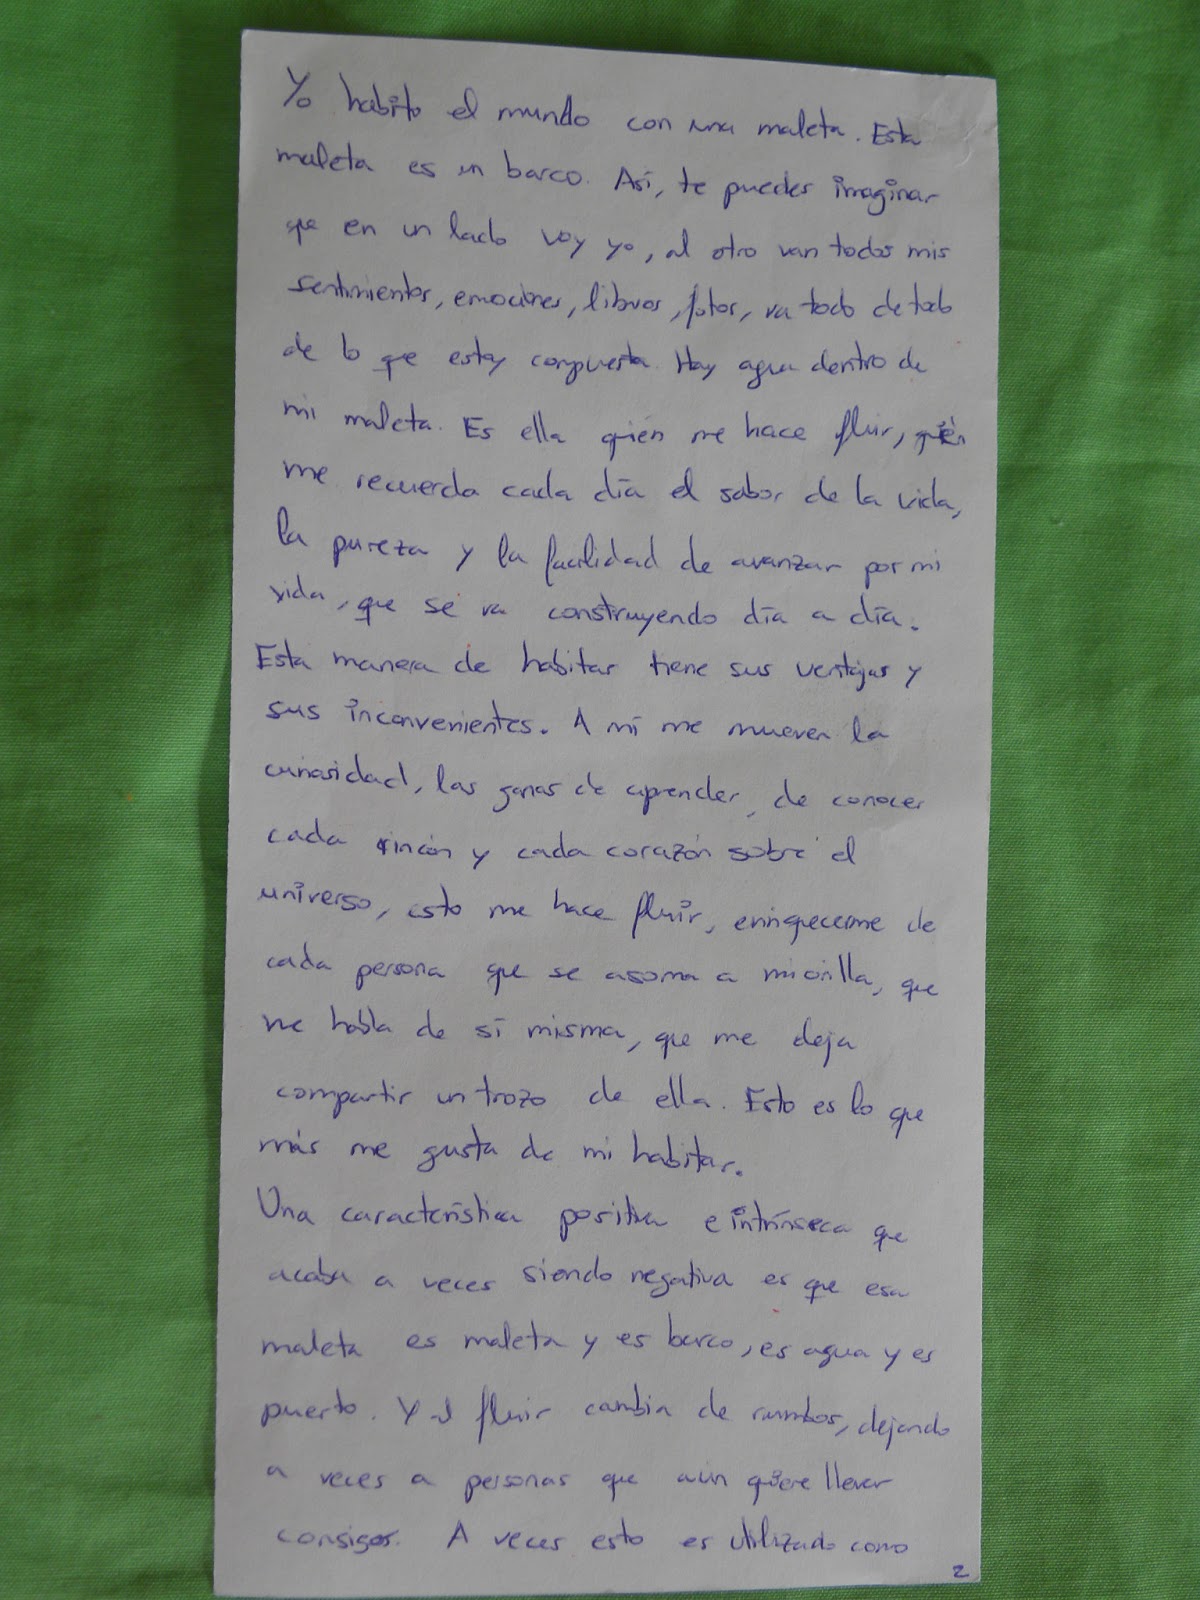 Yo habito el mundo con una maleta. Esta
maleta es un barco. Así, te puedes imaginar
que en un lado voy yo, al otro van todos mis
sentimientos, emociones, libros, fotos, va todo de todo
de lo que estoy compuesta. Hay agua dentro de
mi maleta. Es ella quién me hace fluir, quién
me recuerda cada día el sabor de la vida,
la pureza y la facilidad de avanzar por mi
vida, que se va construyendo día a día.
Esta manera de habitar tiene sus ventajas y
sus inconvenientes. A mí me mueven la
curiosidad, las ganas de aprender, de conocer
cada rincón y cada corazón sobre el
universo, esto me hace fluir, enriquecerme de
cada persona que se asoma a mi orilla, que
me habla de sí misma, que me deja
compartir un trozo de ella. Esto es lo que
más me gusta de mi habitar.
Una característica positiva e intrínseca que
acaba a veces siendo negativa es que esa
maleta es maleta y es barco, es agua y es
puerto. Y el fluir cambia de rumbos, dejando
a veces a personas que aún quiere llevar
consigos. A veces esto es utilizado como
2